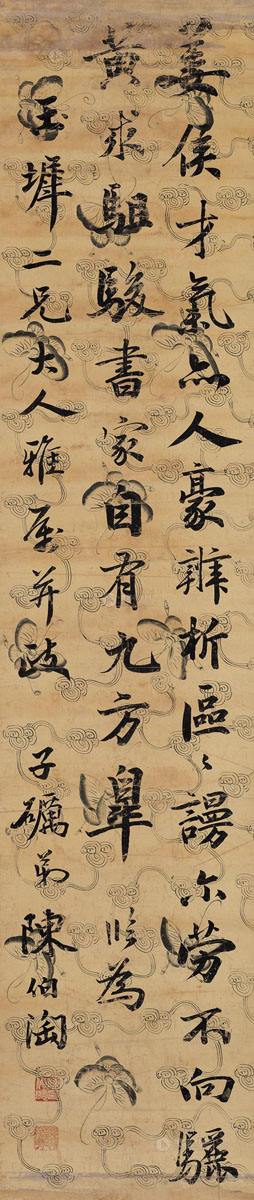 姜侯才氣亦人豪辨析區〻謾尔勞不向驪
黃求駔駿書家自有九方臯臨為
玉墀二兄大人雅屬并政 子礪弟陳伯陶